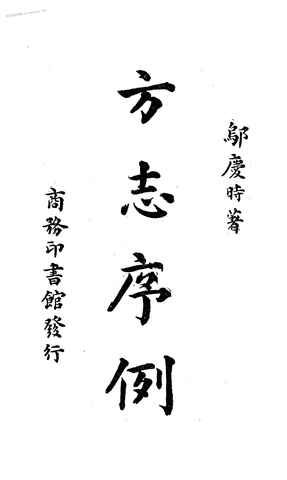 鄔慶時著
方志序例
商務印書館發行